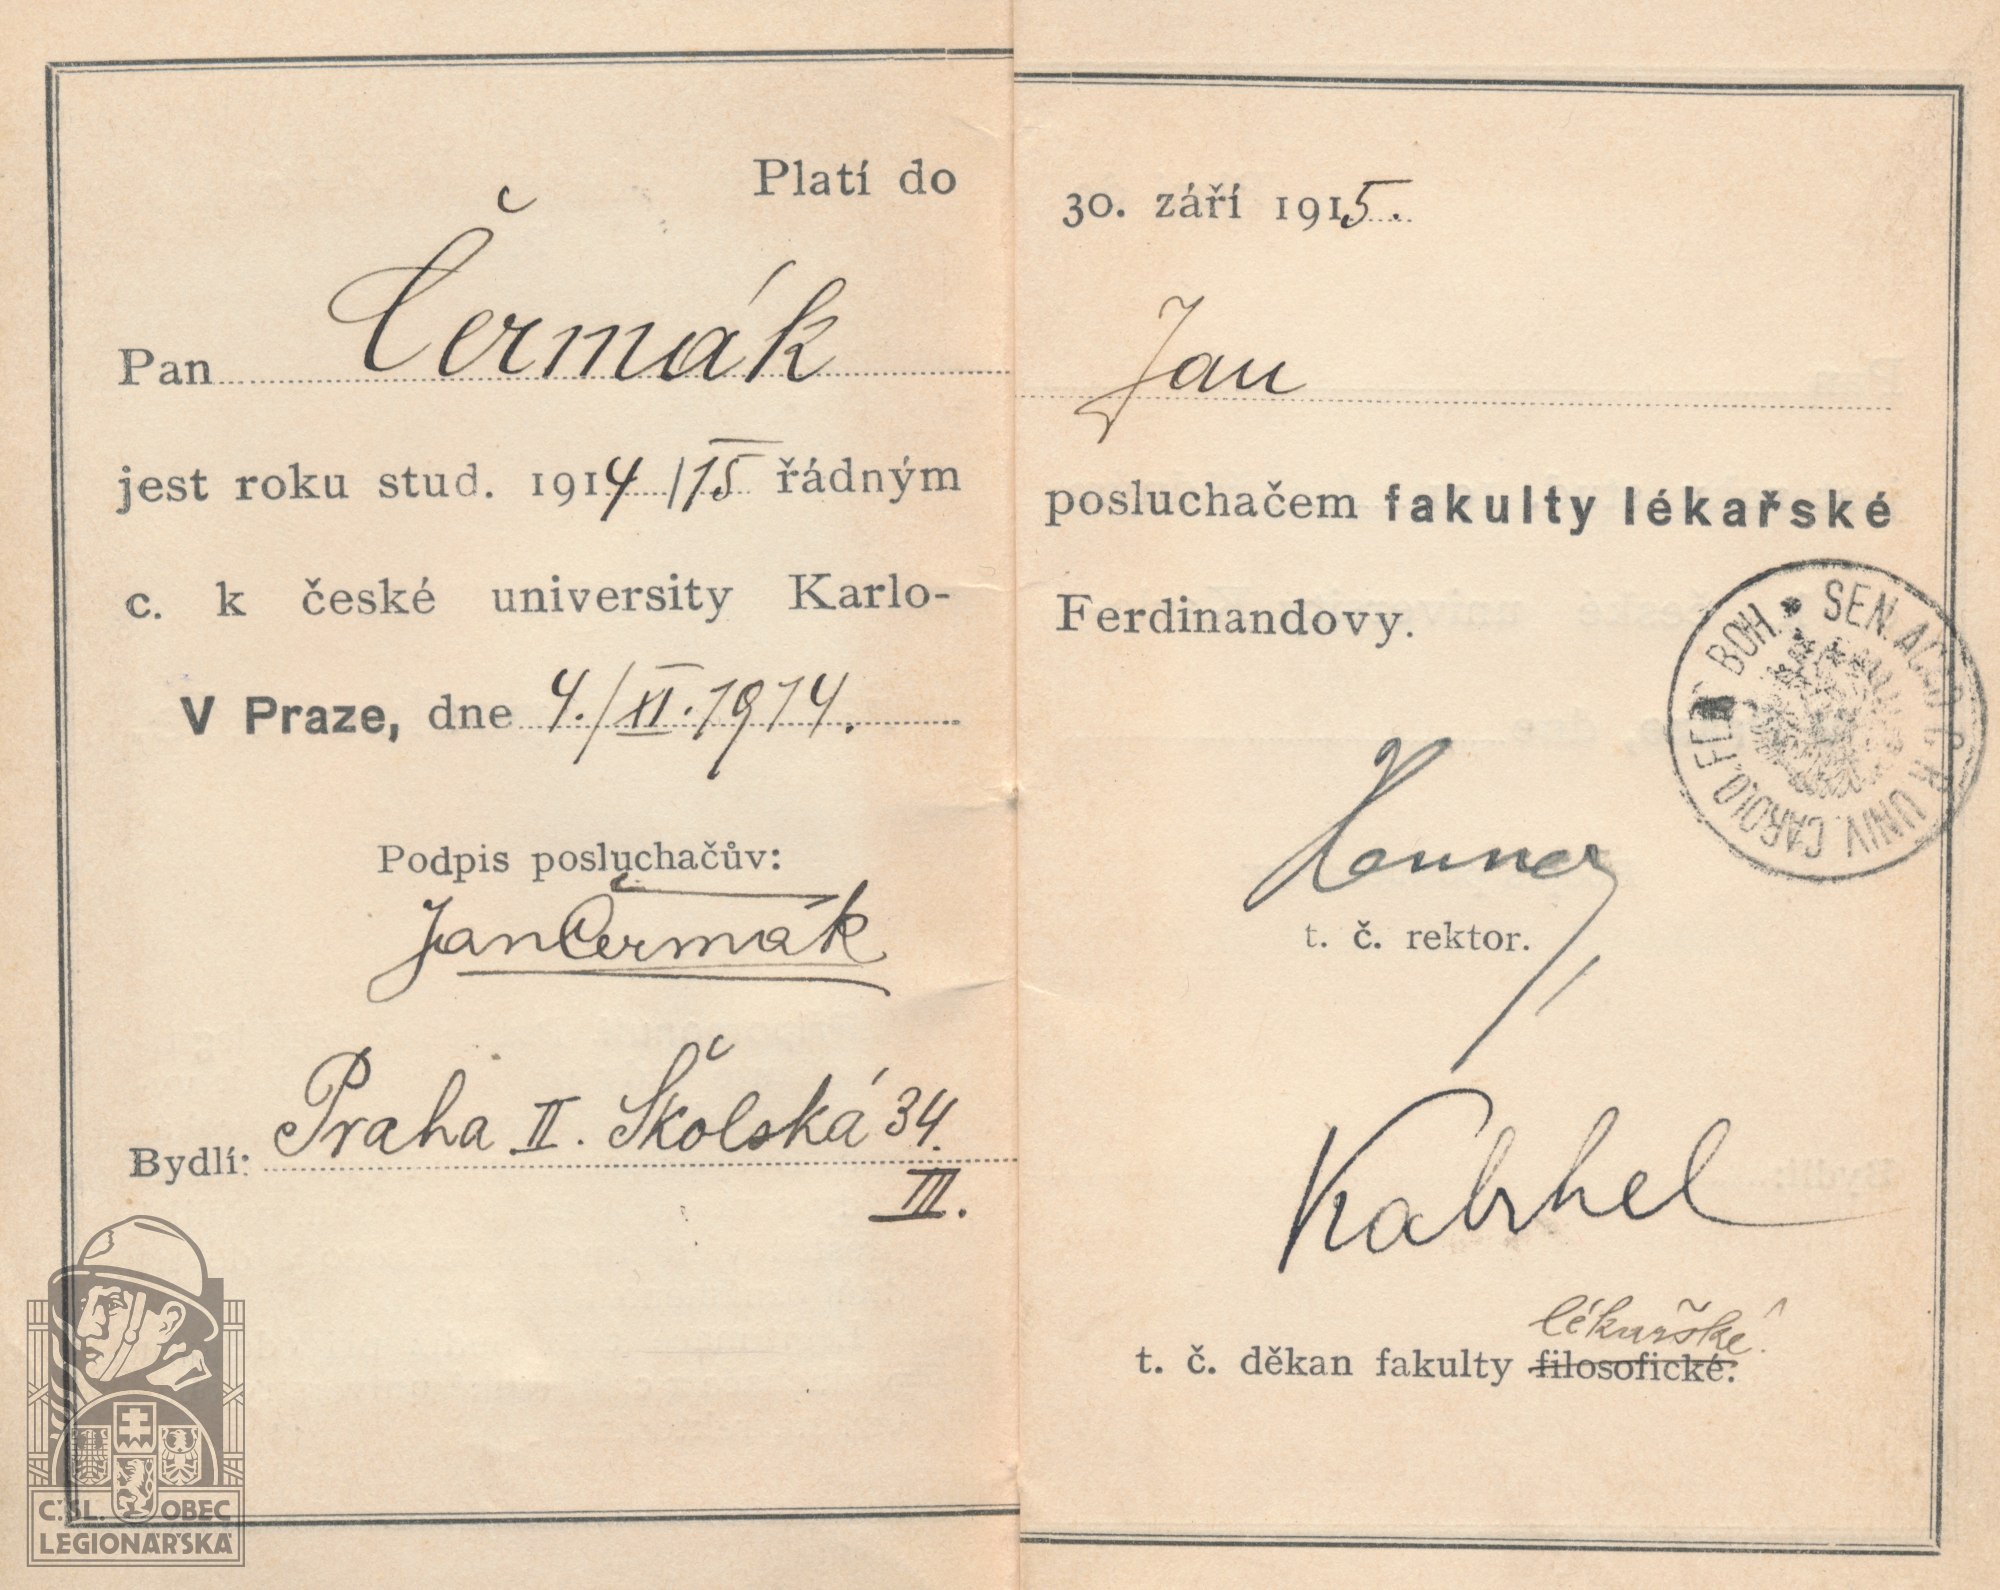 Platí do 30. září 1915.
Pan Čermák Jan
jest roku stud. 1914/15 řádným posluchačem fakulty lékařské
c. k české university Karlo-Ferdinandovy.
V Praze, dne 4./XI. 1914.
SEN. ACAD. C. R. UNIV. CAROLO. FERD. BOH.
Podpis posluchačův:
Jan Čermák
t. č. rektor.
Bydlí: Praha II. Školská 34.
III.
Kabrhel
lékařské
t. č. děkan fakulty filosofické.
Č.SL. OBEC
LEGIONÁŘSKÁ